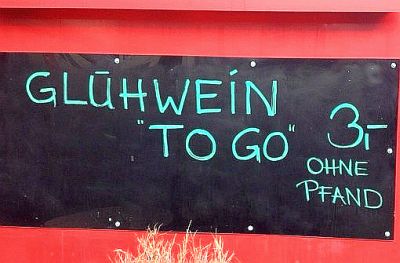 GLÜHWEIN
"TO GO" 3,-
OHNE
PFAND